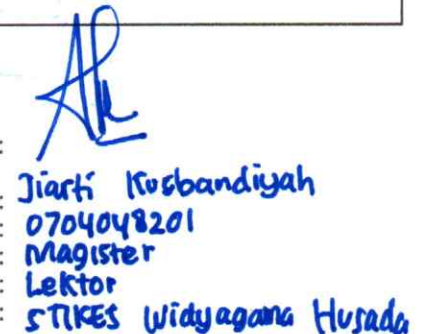 :
: Jiarti Kusbandiyah
: 0704048201
: Magister
: Lektor
: STIKES Widyagama Husada